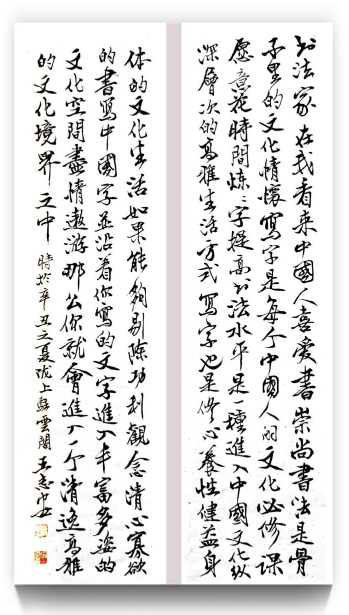 书法家在我看来中國人喜爱書崇尚書法是骨
子里的文化情懷寫字是每个中國人的文化必修课
愿意花時間炼々字提高书法水平是一種進入中國文化纵
深層次的高雅生活方式寫字也是修心養性健益身
体的文化生活如果能夠剔除功利觀念清心寡欲
的書寫中國字並沿着你寫的文字進入丰富多姿的
文化空間盡情遨游那么你就會進入一个清逸高雅
的文化境界之中 時於辛丑之夏陇上 雲閣王志